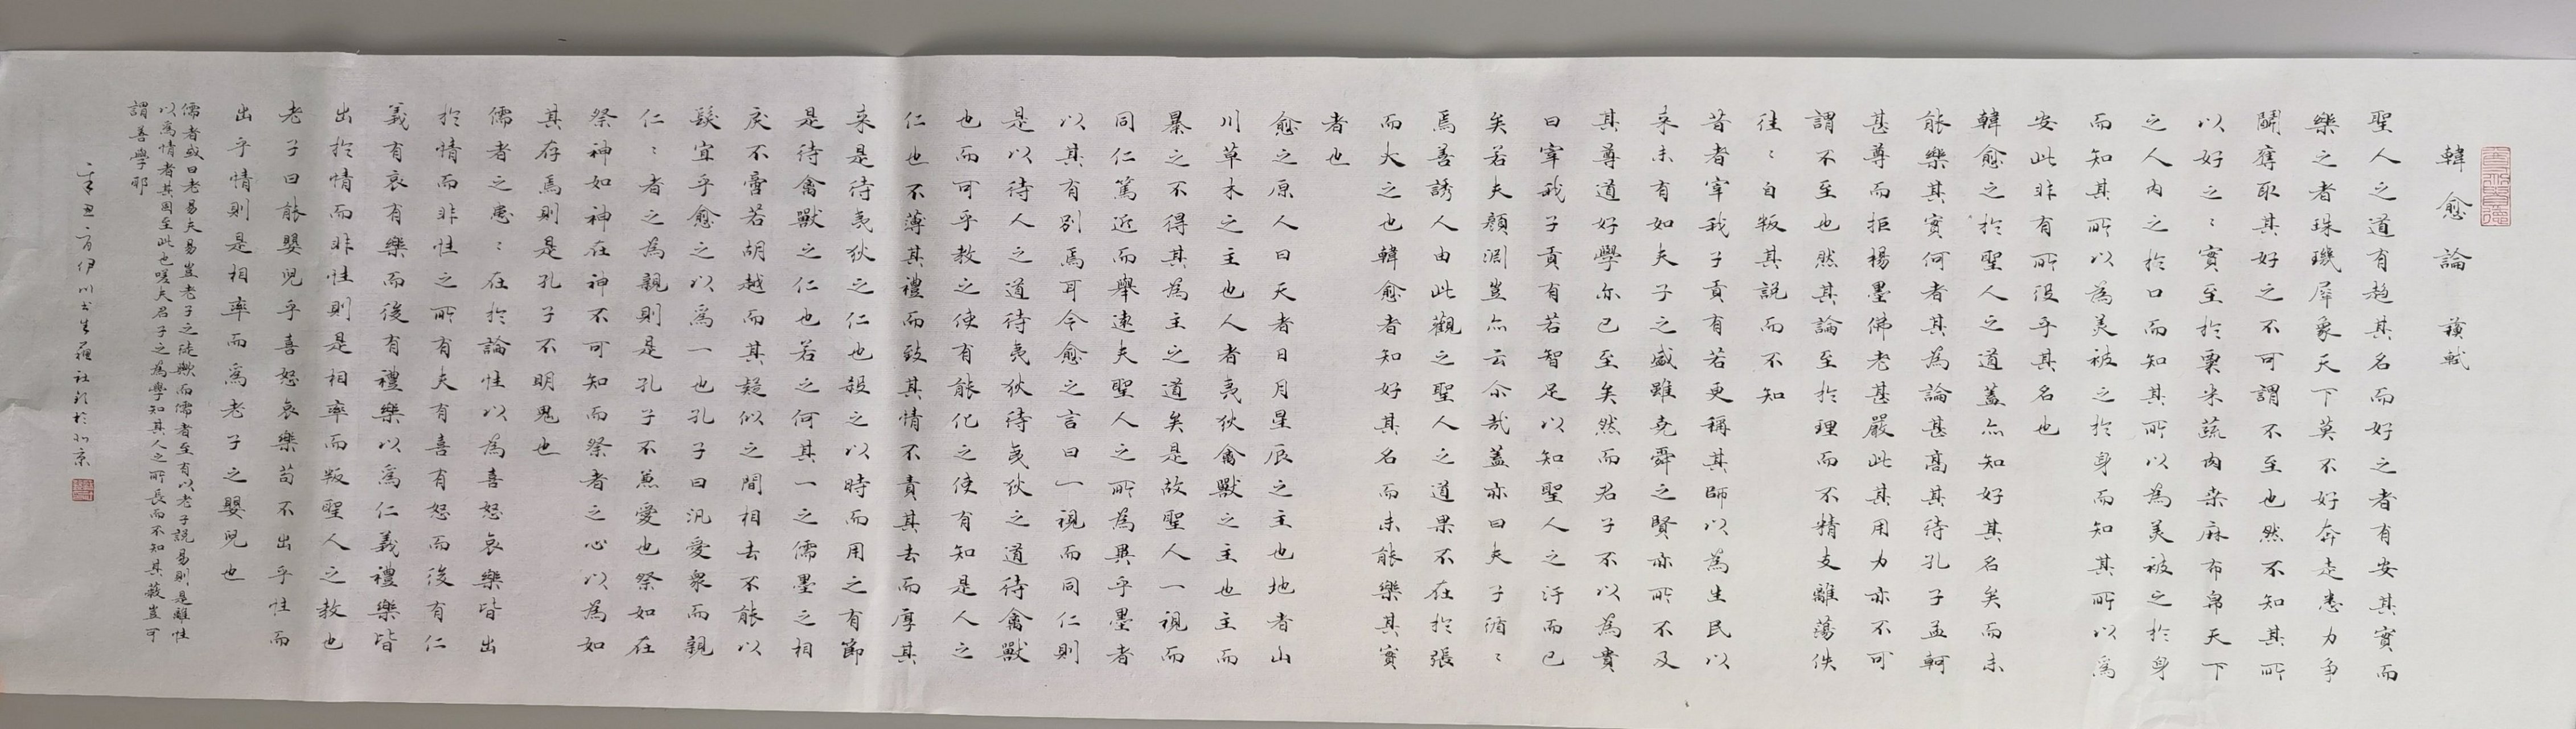 韓愈論 蘓軾
聖人之道有趋其名而好之者有安其實而
樂之者珠璣犀象天下莫不好奔走悉力争
鬭奪取其好之不可謂不至也然不知其所
以好之〻實至於粟米蔬肉桒麻布帛天下
之人內之於口而知其所以為美被之於身
而知其所以為美被之於身而知其所以爲
安此非有所役乎其名也
韓愈之於聖人之道蓋亦知好其名矣而未
能樂其實何者其為論甚髙其待孔子孟軻
甚尊而拒楊墨佛老甚嚴此其用力亦不可
謂不至也然其論至於理而不精支離蕩佚
往〻自叛其説而不知
昔者宰我子貢有若更稱其師以為生民以
来未有如夫子之盛雖尭舜之賢亦所不及
其尊道好學亦已至矣然而君子不以為貴
曰宰我子貢有若智足以知聖人之汙而已
矣若夫顔淵豈亦云尒哉蓋亦曰夫子循〻
焉善誘人由此觀之聖人之道果不在於張
而大之也韓愈者知好其名而未能樂其實
者也
愈之原人曰天者日月星辰之主也地者山
川草木之主也人者夷狄禽獸之主也主而
暴之不得其為主之道矣是故聖人一視而
同仁篤近而舉逺夫聖人之所為異乎墨者
以其有别焉耳今愈之言曰一視而同仁則
是以待人之道待夷狄待夷狄之道待禽獸
也而可乎教之使有能化之使有知是人之
仁也不薄其禮而致其情不責其去而厚其
来是待夷狄之仁也殺之以時而用之有節
是待禽獸之仁也若之何其一之儒墨之相
戾不啻若胡越而其疑似之間相去不能以
髮宜乎愈之以爲一也孔子曰汎愛衆而親
仁〻者之為親則是孔子不兼愛也祭如在
祭神如神在神不可知而祭者之心以為如
其存焉則是孔子不明鬼也
儒者之患〻在於論性以為喜怒哀樂皆出
於情而非性之所有夫有喜有怒而後有仁
義有哀有樂而後有禮樂以爲仁義禮樂皆
出於情而非性則是相率而叛聖人之教也
老子曰能嬰兒乎喜怒哀樂苟不出乎性而
出乎情則是相率而爲老子之嬰兒也
儒者或曰老易夫易豈老子之徒歟而儒者至有以老子説易則是離性
以爲情者其囯至此也嗟夫君子之為學知其人之所長而不知其蔽豈可
謂善學邪
辛丑二月伊川书生蘓社